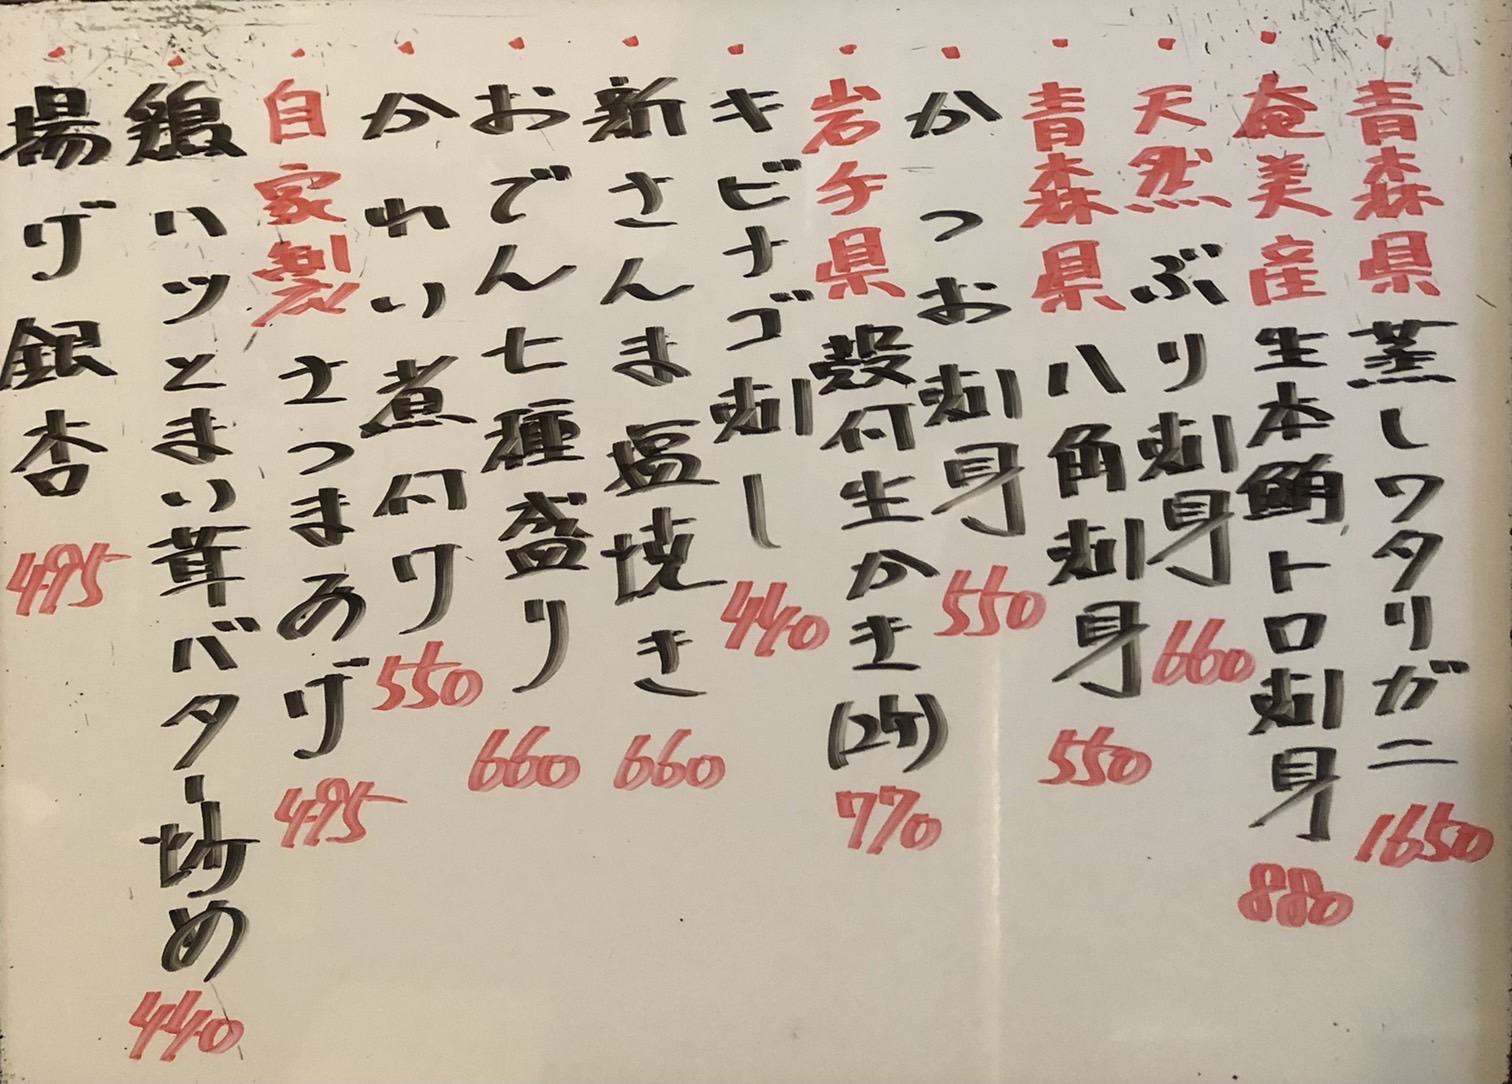 青森県蒸しワタリガニ 1650
奄美産生本鮪トロ刺身 880
天然ぶり刺身 660
青森県八角刺身 550
かつお刺身 550
岩手県殻付生かき(2ケ) 770
キビナゴ刺し 440
新さんま塩焼き 660
おでん七種盛り 660
かれい煮付け 550
自家製さつまあげ 495
鶏ハツとまい茸バター炒め 440
揚げ銀杏 495